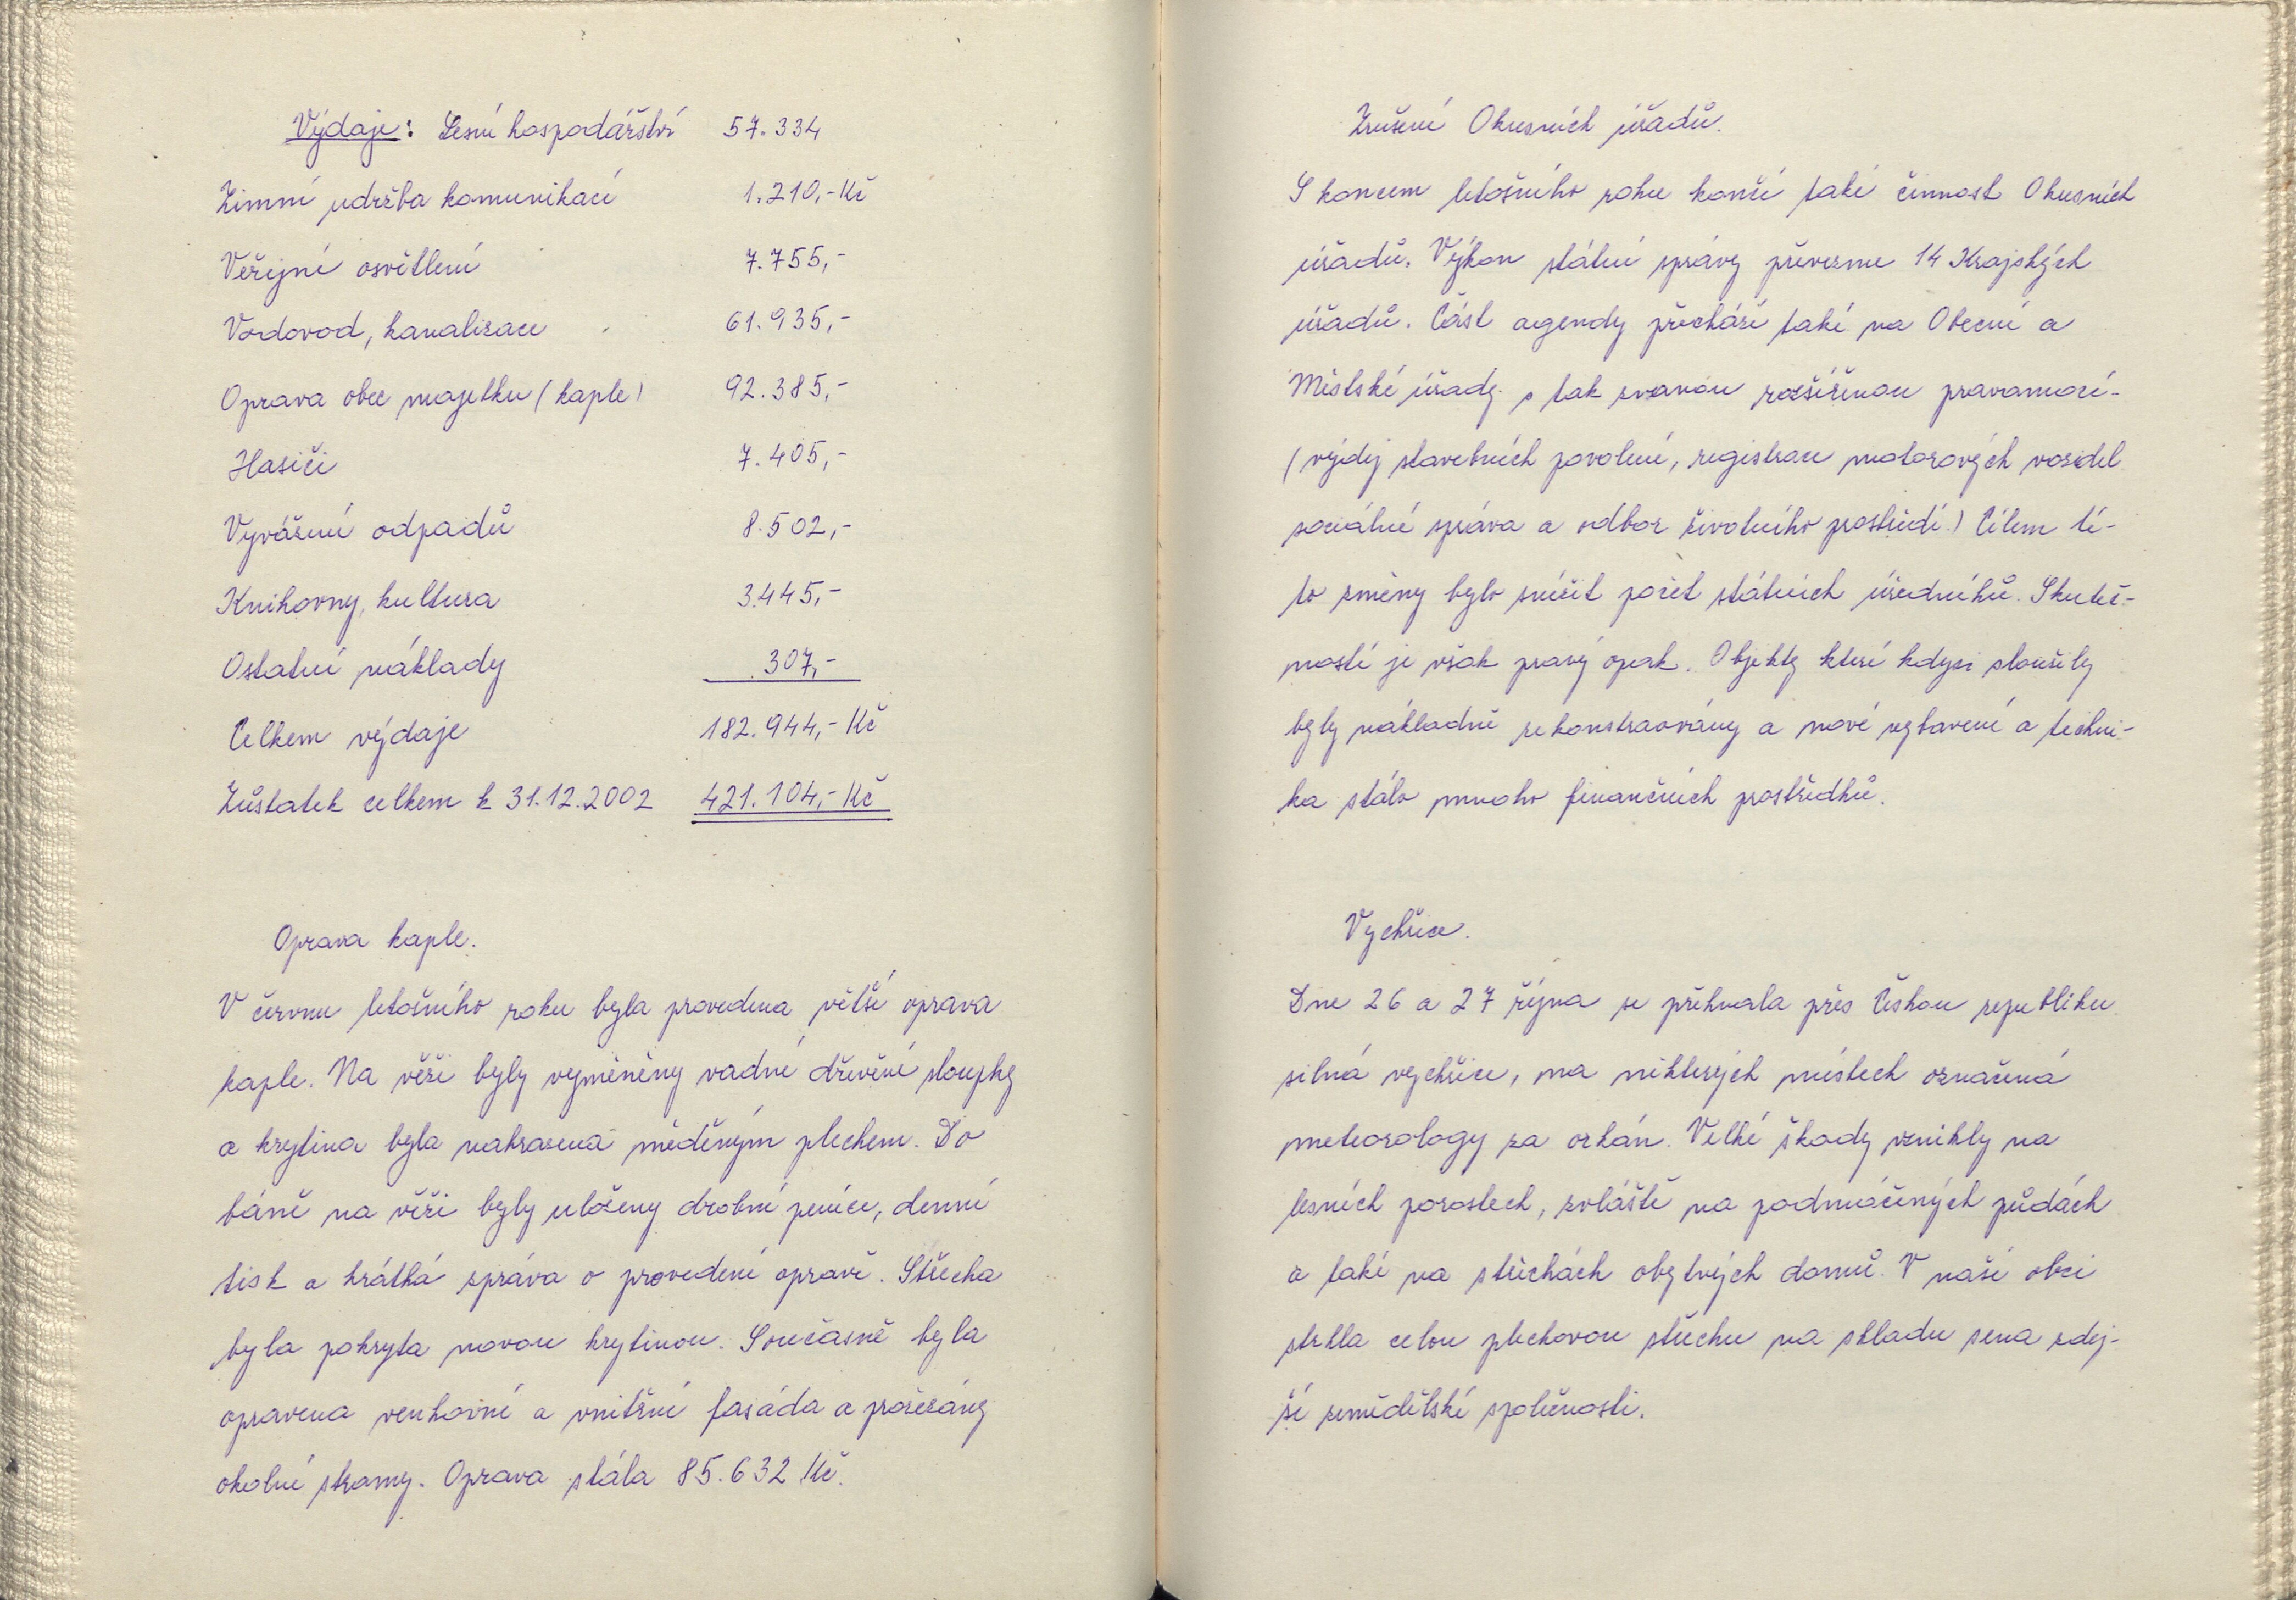 Výdaje: Lesní hospodářství 57.334
Zimní udržba komunikací 1.210,- Kč
Veřejné osvětlení 7.755,-
Vodovod, kanalizace 61.935,-
Oprava obec majetku (kaple) 92.385,-
Hasiči 7.405,-
Vyvážení odpadů 8.502,-
Knihovny, kultura 3.445,-
Ostatní náklady 307,-
Celkem výdaje 182.944,- Kč
Zůstatek celkem k 31.12.2002 421.104,- Kč
Oprava kaple.
V červnu letošního roku byla provedena větší oprava
kaple. Na věži byly vyměněny vadné dřevěné sloupky
a krytina byla nahrazena měděným plechem. Do
báně na věži byly uloženy drobné peníze, denní
tisk a krátká zpráva o provedené opravě. Střecha
byla pokryta novou krytinou. Současně byla
opravena venkovní a vnitřní fasáda a prořezány
okolní stromy. Oprava stála 85.632 Kč.
Zrušení Okresních úřadů.
S koncem letošního roku končí také činnost Okresních
úřadů. Výkon státní správy převezme 14 Krajských
úřadů. Část agendy přechází také na Obecní a
Městské úřady s tak zvanou rozšířenou pravomocí-
(výdej stavebních povolení, registrace motorových vozidel
sociálně správa a odbor životního prostředí.) Cílem té-
to změny bylo snížit počet státních úředníků. Skuteč-
ností je však pravý opak. Objekty které kdysi sloužily
byly nákladně rekonstraovány a nové vybavení a techni-
ka stálo mnoho finančních prostředků.
Vychřice.
Dne 26 a 27 října se přehnala přes Českou republiku
silná vychřice, ma některých místech označená
meteorology za orkán. Velké škody vznikly na
lesních porostech, zvláště na podmáčených půdách
a také na střechách obytných domů. V naší obci
strhla celou plechovou střechu na skladu sena zdej-
ší zemědělské společnosti.